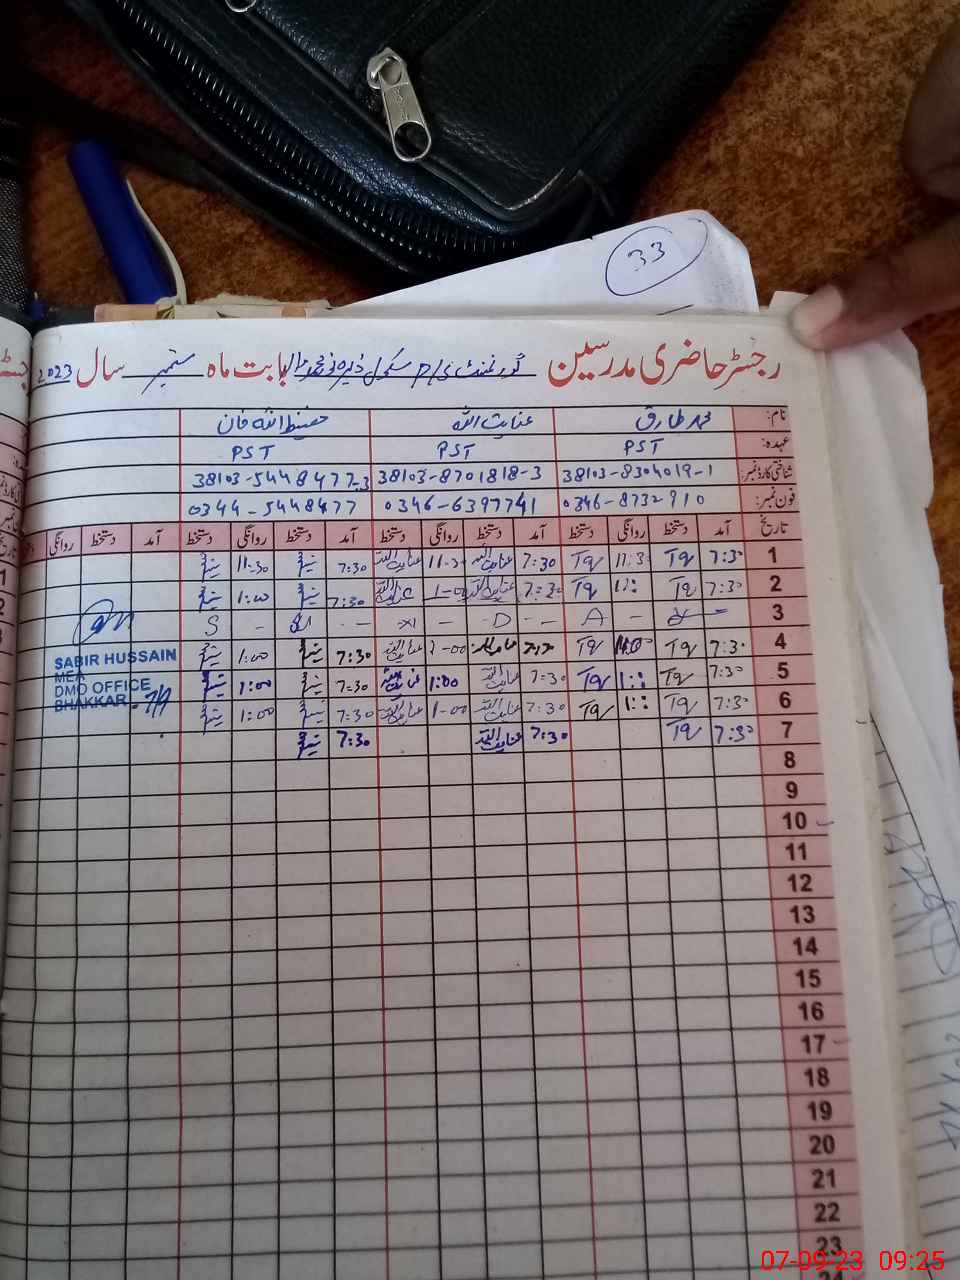 33
رجسٹر حاضری مدرسین گورنمنٹ پرائمری سکول ڈیرہ نور محمد بابت ماہ ستمبر سال 2023
نام: محمد طارق عنایت اللہ حفیظ اللہ خان
عہدہ: PST PST PST
شناختی کارڈ نمبر: 38103-8304019-1 38103-8701818-3 38103-5448477-3
فون نمبر: 0346-8732910 0346-6397741 0344-5448477
تاریخ آمد دستخط روانگی دستخط آمد دستخط روانگی دستخط آمد دستخط روانگی دستخط آمد دستخط روانگی
1 7:30 Tq 11:30 Tq 7:30 عنایت اللہ عنایت اللہ 7:30 11-30
2 7:30 Tq 1:: Tq 7:30 عنایت اللہ 1-00 عنایت اللہ 7:30 1:00
3 - A - D - - S
4 7:30 Tq 1:00 Tq 7:30 1-00 عنایت اللہ 7:30 1:00
5 7:30 Tq 1:: Tq 7:30 عنایت اللہ 1:00 عنایت اللہ 7:30 1:00
6 7:30 Tq 1:: Tq 7:30 عنایت اللہ 1-00 عنایت اللہ 7:30 1:00
7 7:30 Tq 7:30 عنایت اللہ 7:30
SABIR HUSSAIN
MEA
DMO OFFICE
BHAKKAR. 7/9
8
9
10
11
12
13
14
15
16
17
18
19
20
21
22
23
07-09-23 09:25